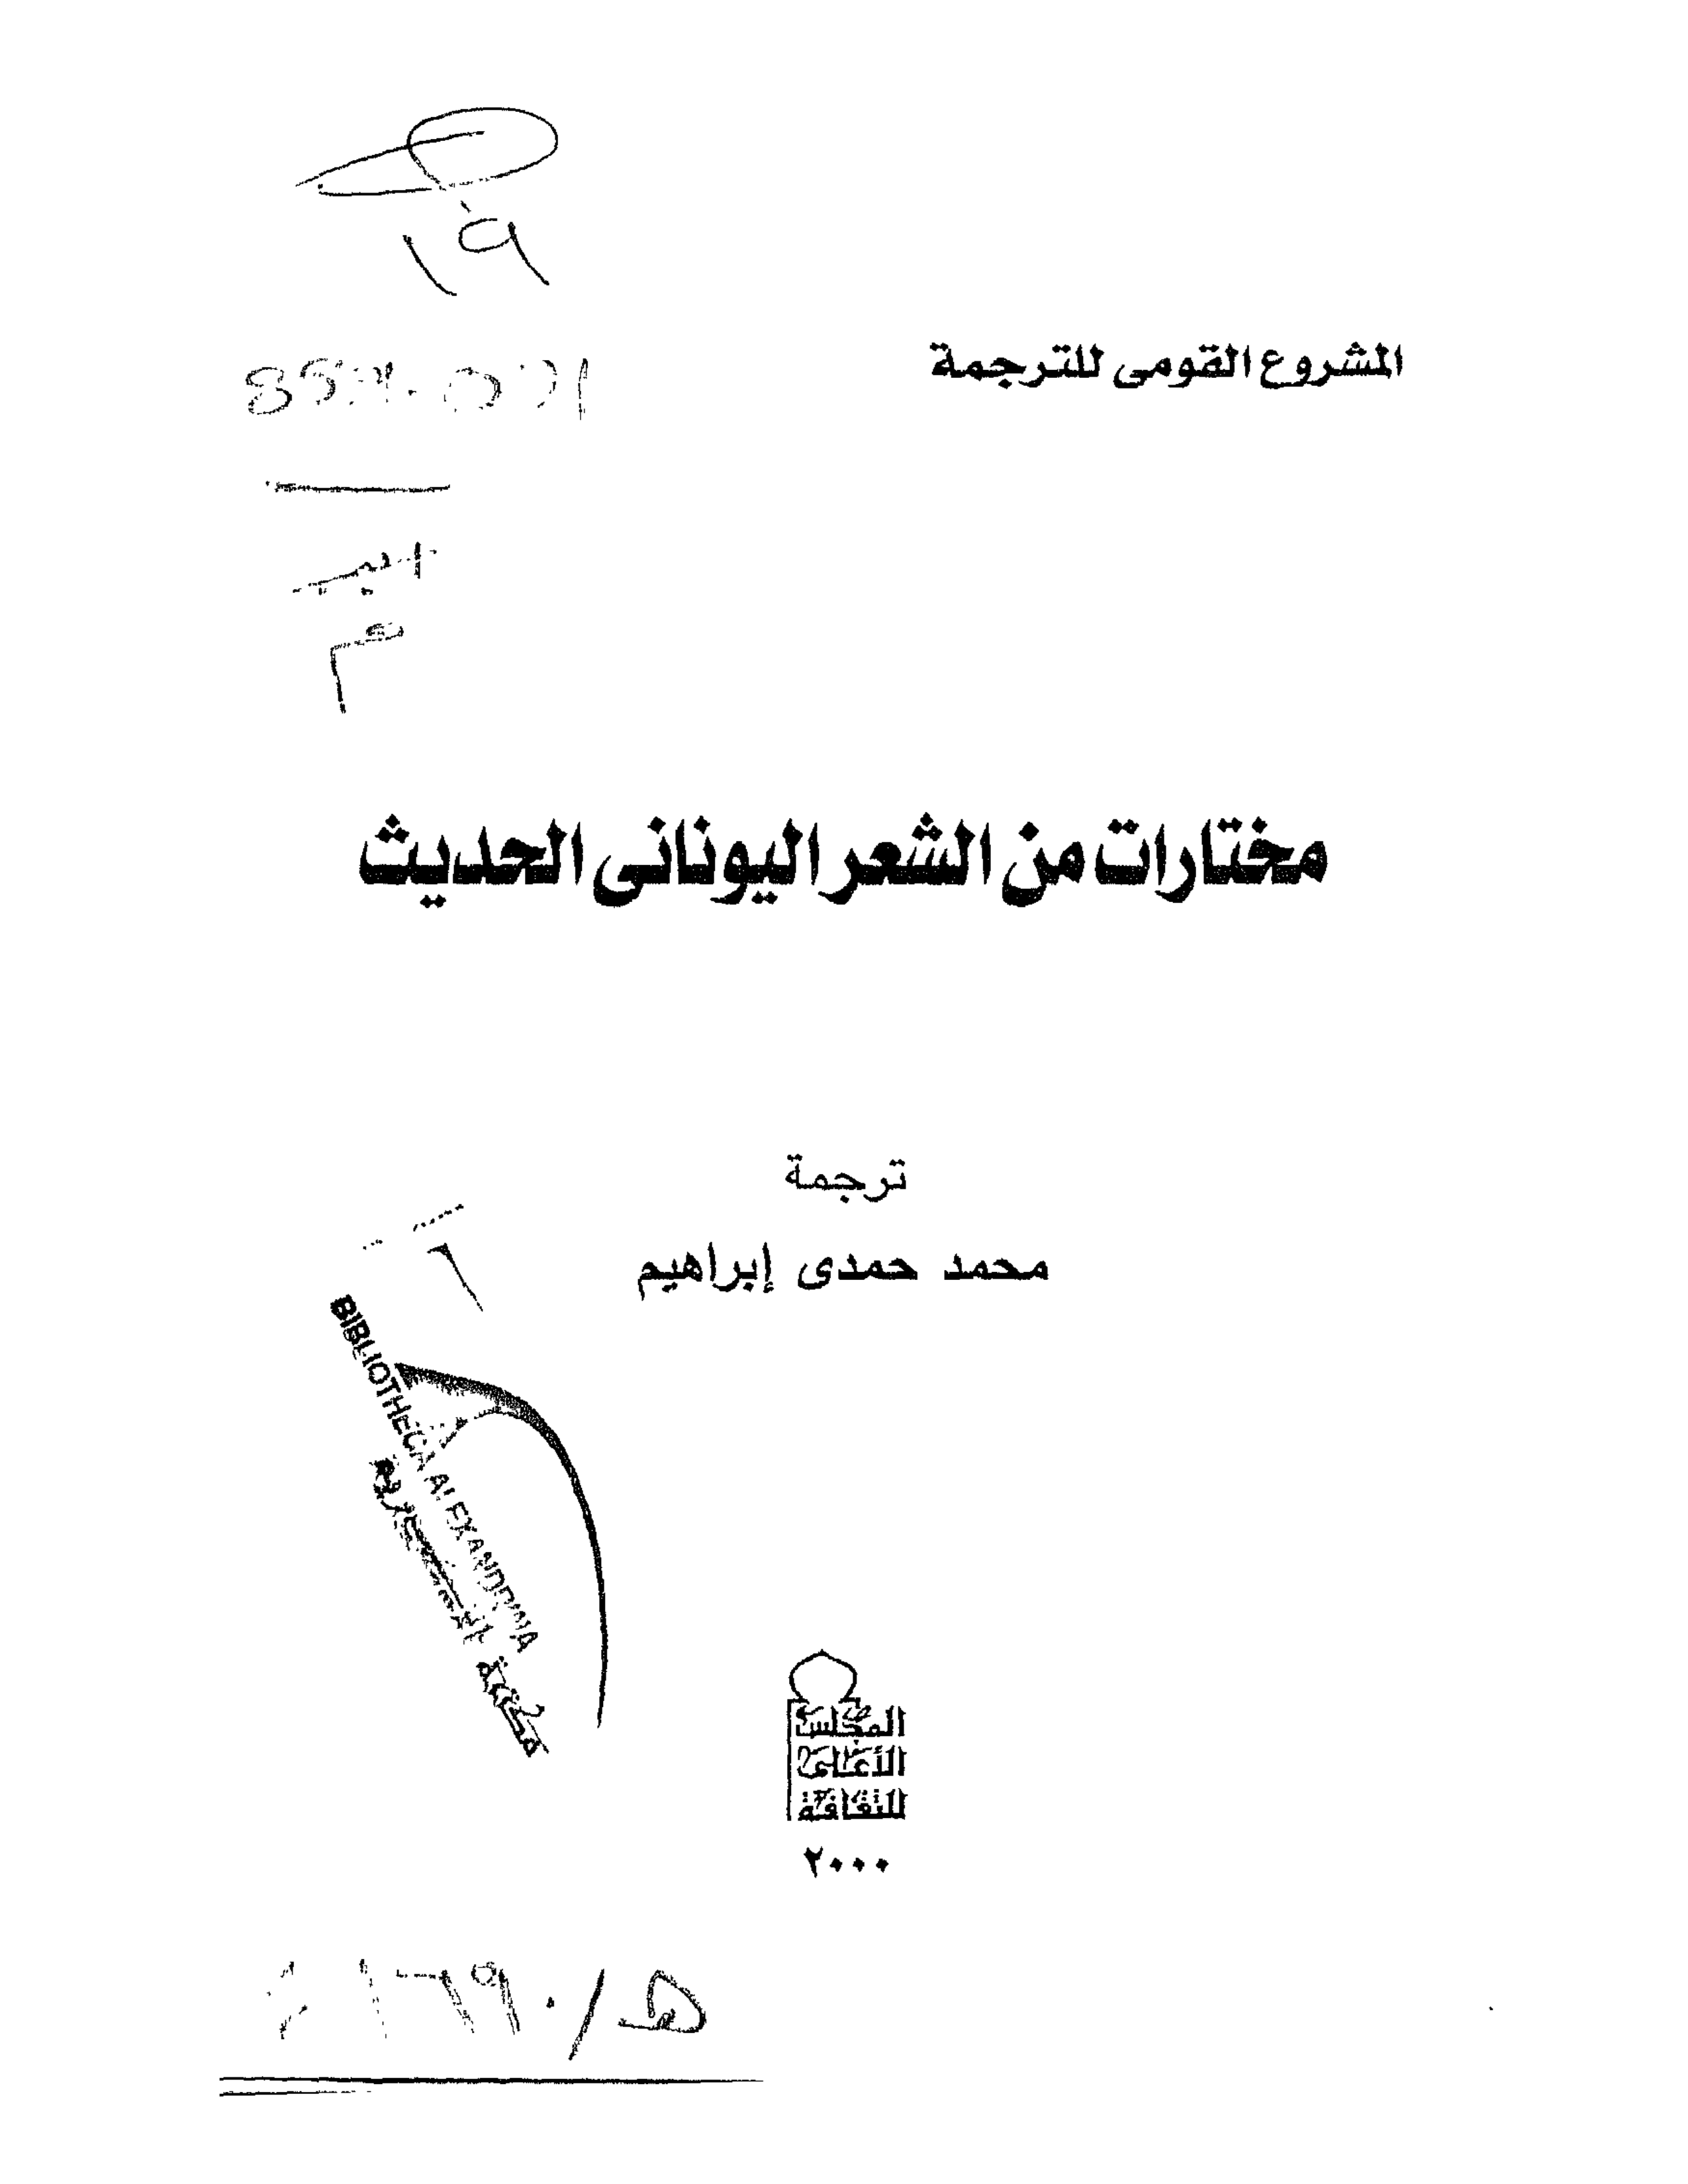 المشروع القومى للترجمة
مختارات من الشعر اليونانى الحديث
ترجمة
محمد حمدى إبراهيم
BIBLIOTHECA ALEXANDRINA
مكتبة الإسكندرية
المجلس
الأعلى
للثقافة
٢٠٠٠